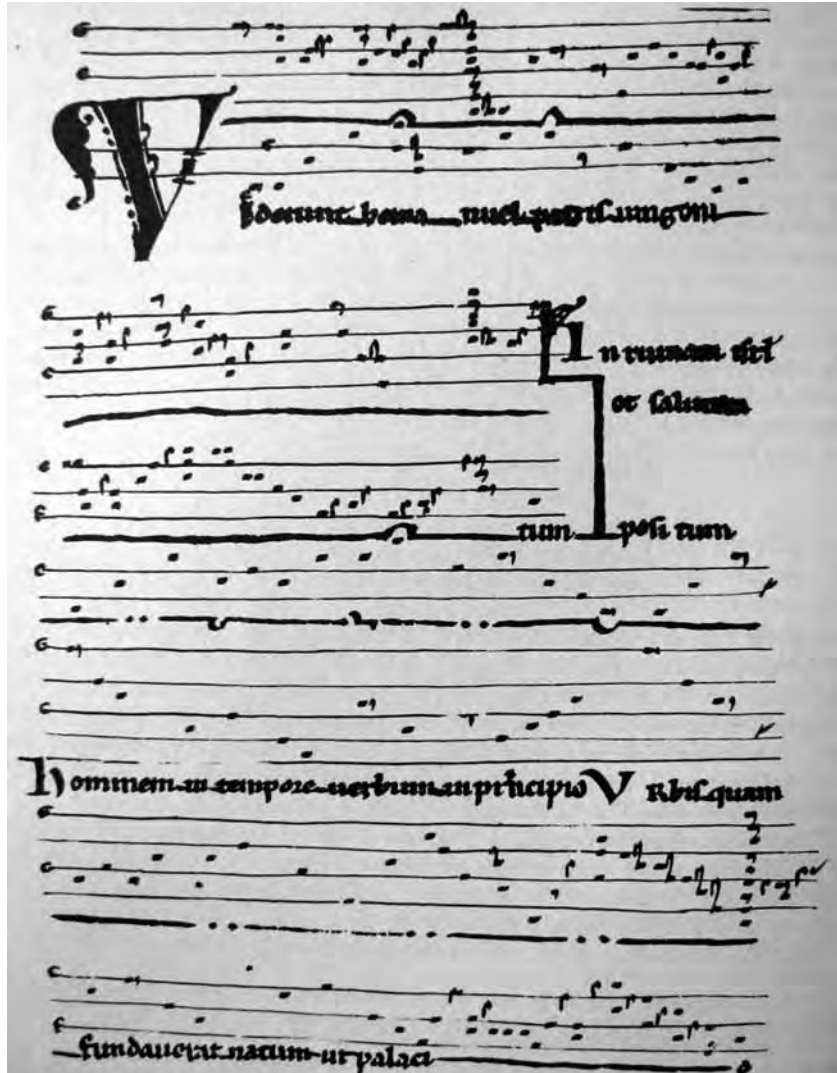 Viderunt hema nuel patris unigeni
In ruinam isrl
et
tum posi tum
hominem in tempore uerbum in principio Vrbis quam
natum ut palaci